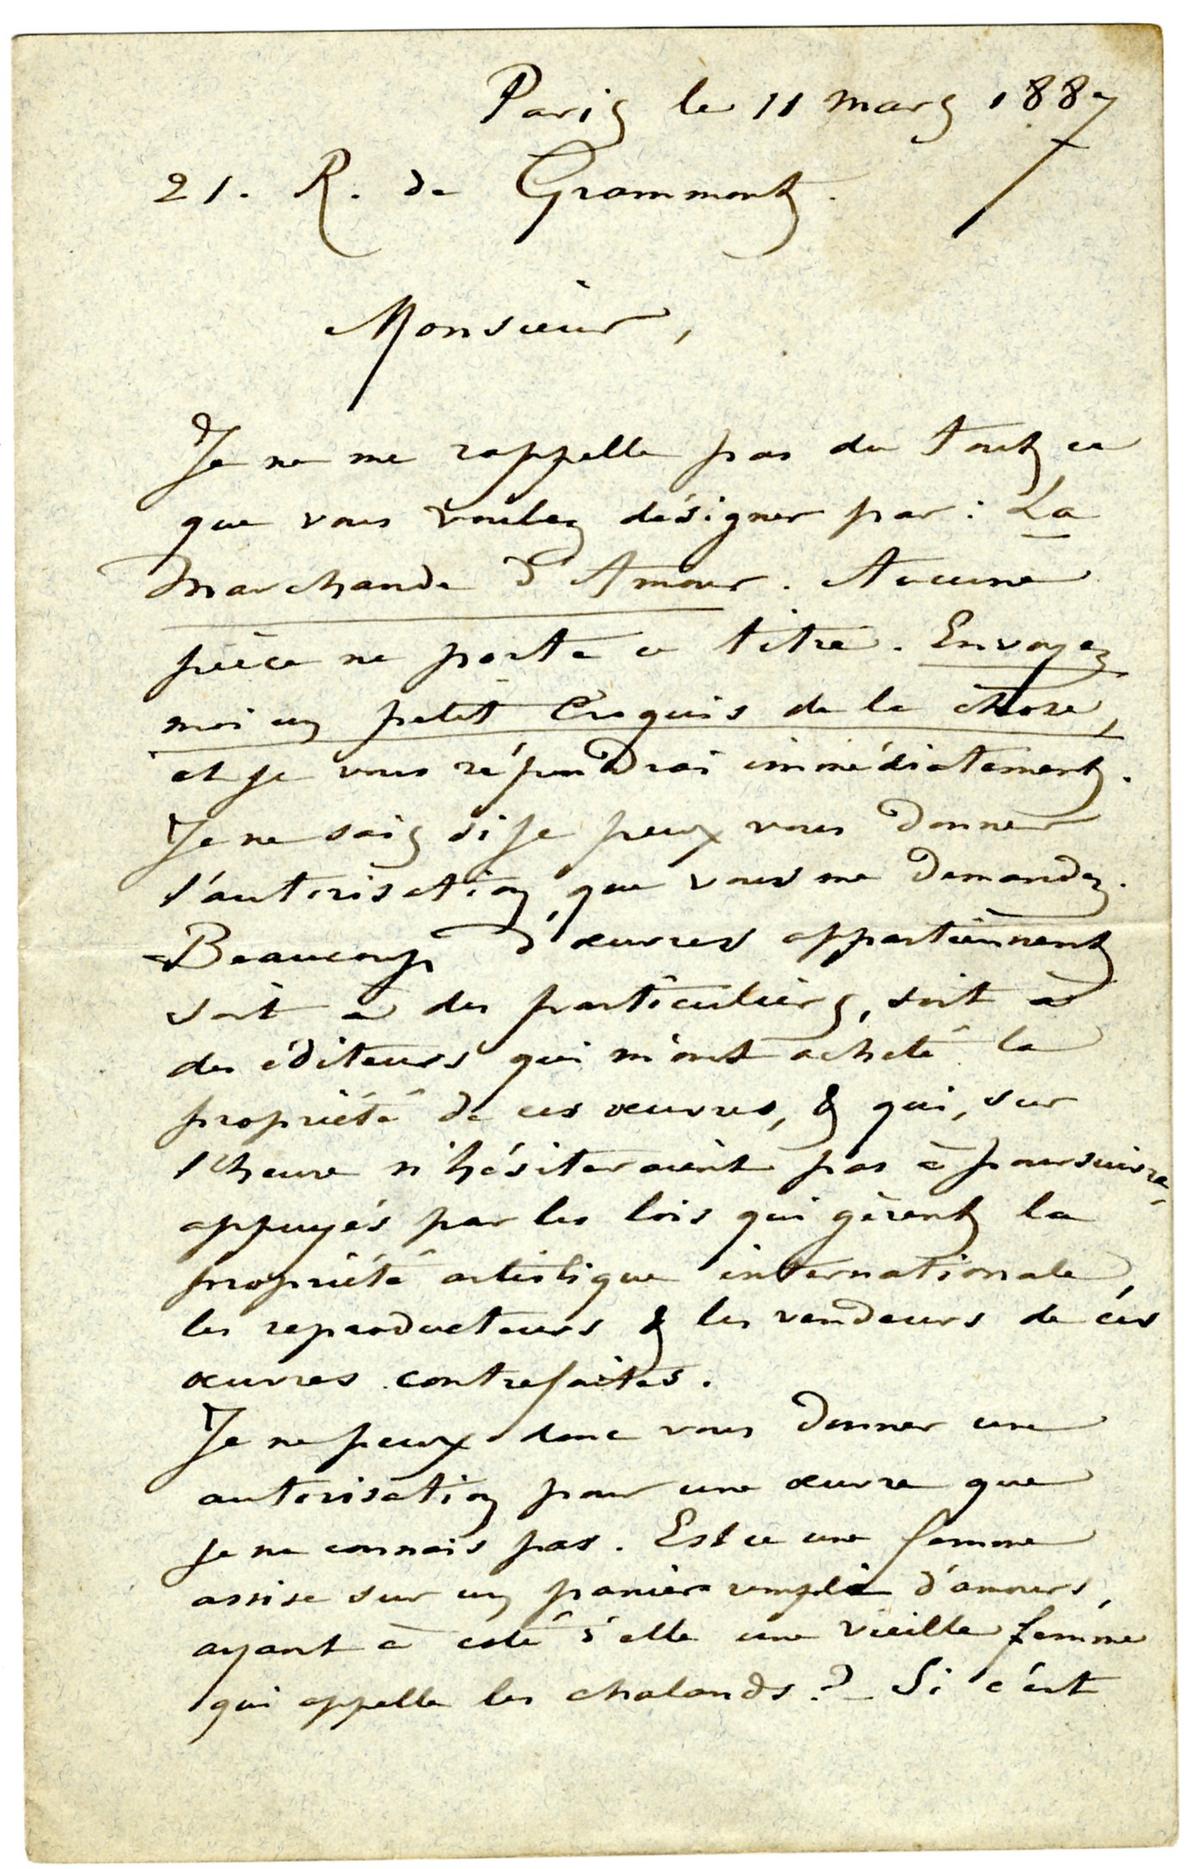 Paris le 11 mars 1887
21. R. de Grammont.
Monsieur,
Je ne me rappelle pas du tout ce
que vous voulez désigner par : La
Marchande d'Amour. Aucune
pièce ne porte ce titre. Envoyez
moi un petit croquis de la chose,
et je vous répondrai immédiatement.
Je ne sais si je peux vous donner
l'autorisation que vous me demandez.
Beaucoup d'œuvres appartiennent
soit à des particuliers, soit à
des éditeurs qui m'ont acheté la
propriété de ces œuvres, & qui, sur
l'heure n'hésiteraient pas à poursuivre,
appuyés par les lois qui gèrent la
propriété artistique internationale,
les reproducteurs & les vendeurs de ces
œuvres contrefaites.
Je ne peux donc vous donner une
autorisation pour une œuvre que
je ne connais pas. Est ce une femme
assise sur un panier rempli d'amours,
ayant à coté d'elle une vieille femme
qui appelle les chalands ? – Si c'est